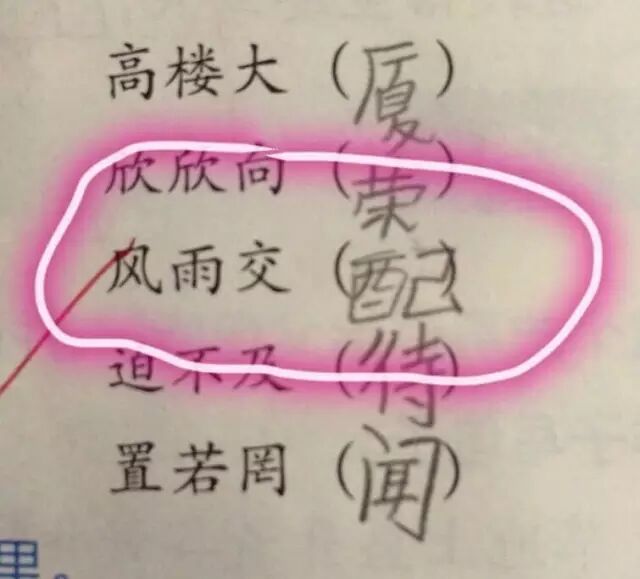 高楼大（厦）
欣欣向（荣）
风雨交（配）
迫不及（待）
置若罔（闻）
里。